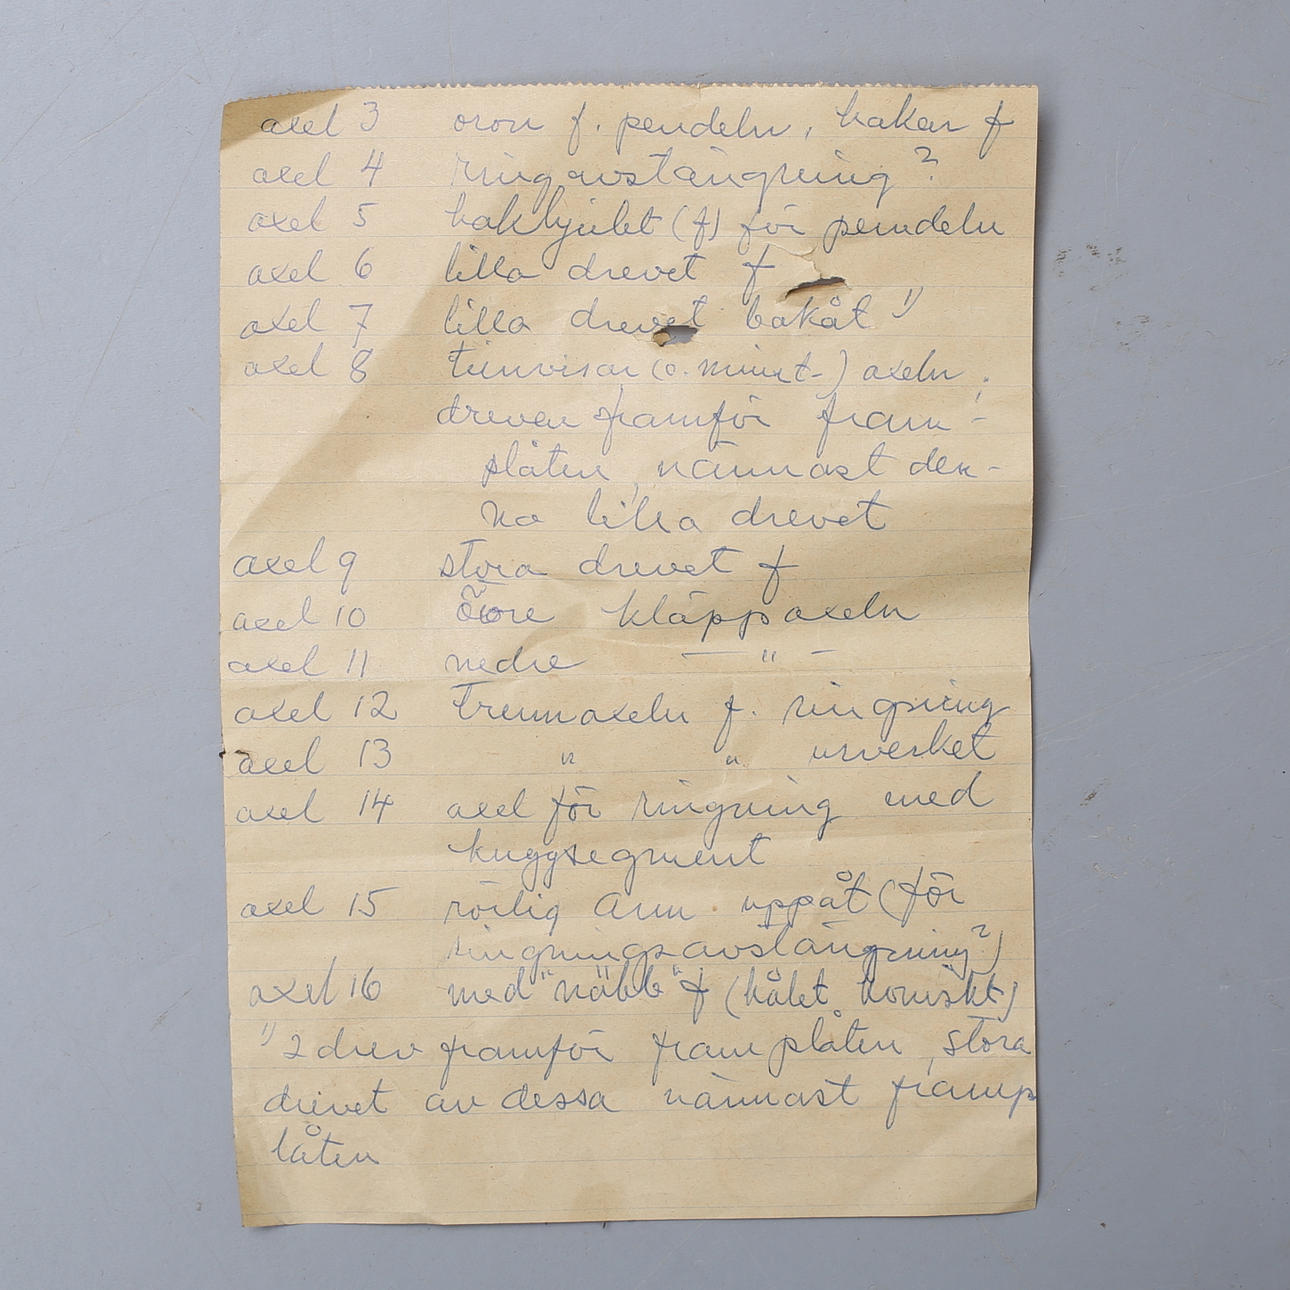 axel 3 oron f. pendeln, hakar f
axel 4 ringavstängning?
axel 5 hakhjulet (f) för pendeln
axel 6 lilla drevet f
axel 7 lilla drevet bakåt 1)
axel 8 timvisar (o. minut-) axeln;
dreven framför fram-
plåten, närmast den-
na lilla drevet
axel 9 stora drevet f
axel 10 övre kläppaxeln
axel 11 nedre — " —
axel 12 Trumaxeln f. ringning
axel 13 " " urverket
axel 14 axel för ringning med
kuggsegment
axel 15 rörlig arm uppåt (för
ringningsavstängning?)
axel 16 med "näbb" f (hålet koniskt)
1) 2 drev framför framplåten, stora
drevet av dessa närmast framp
låten